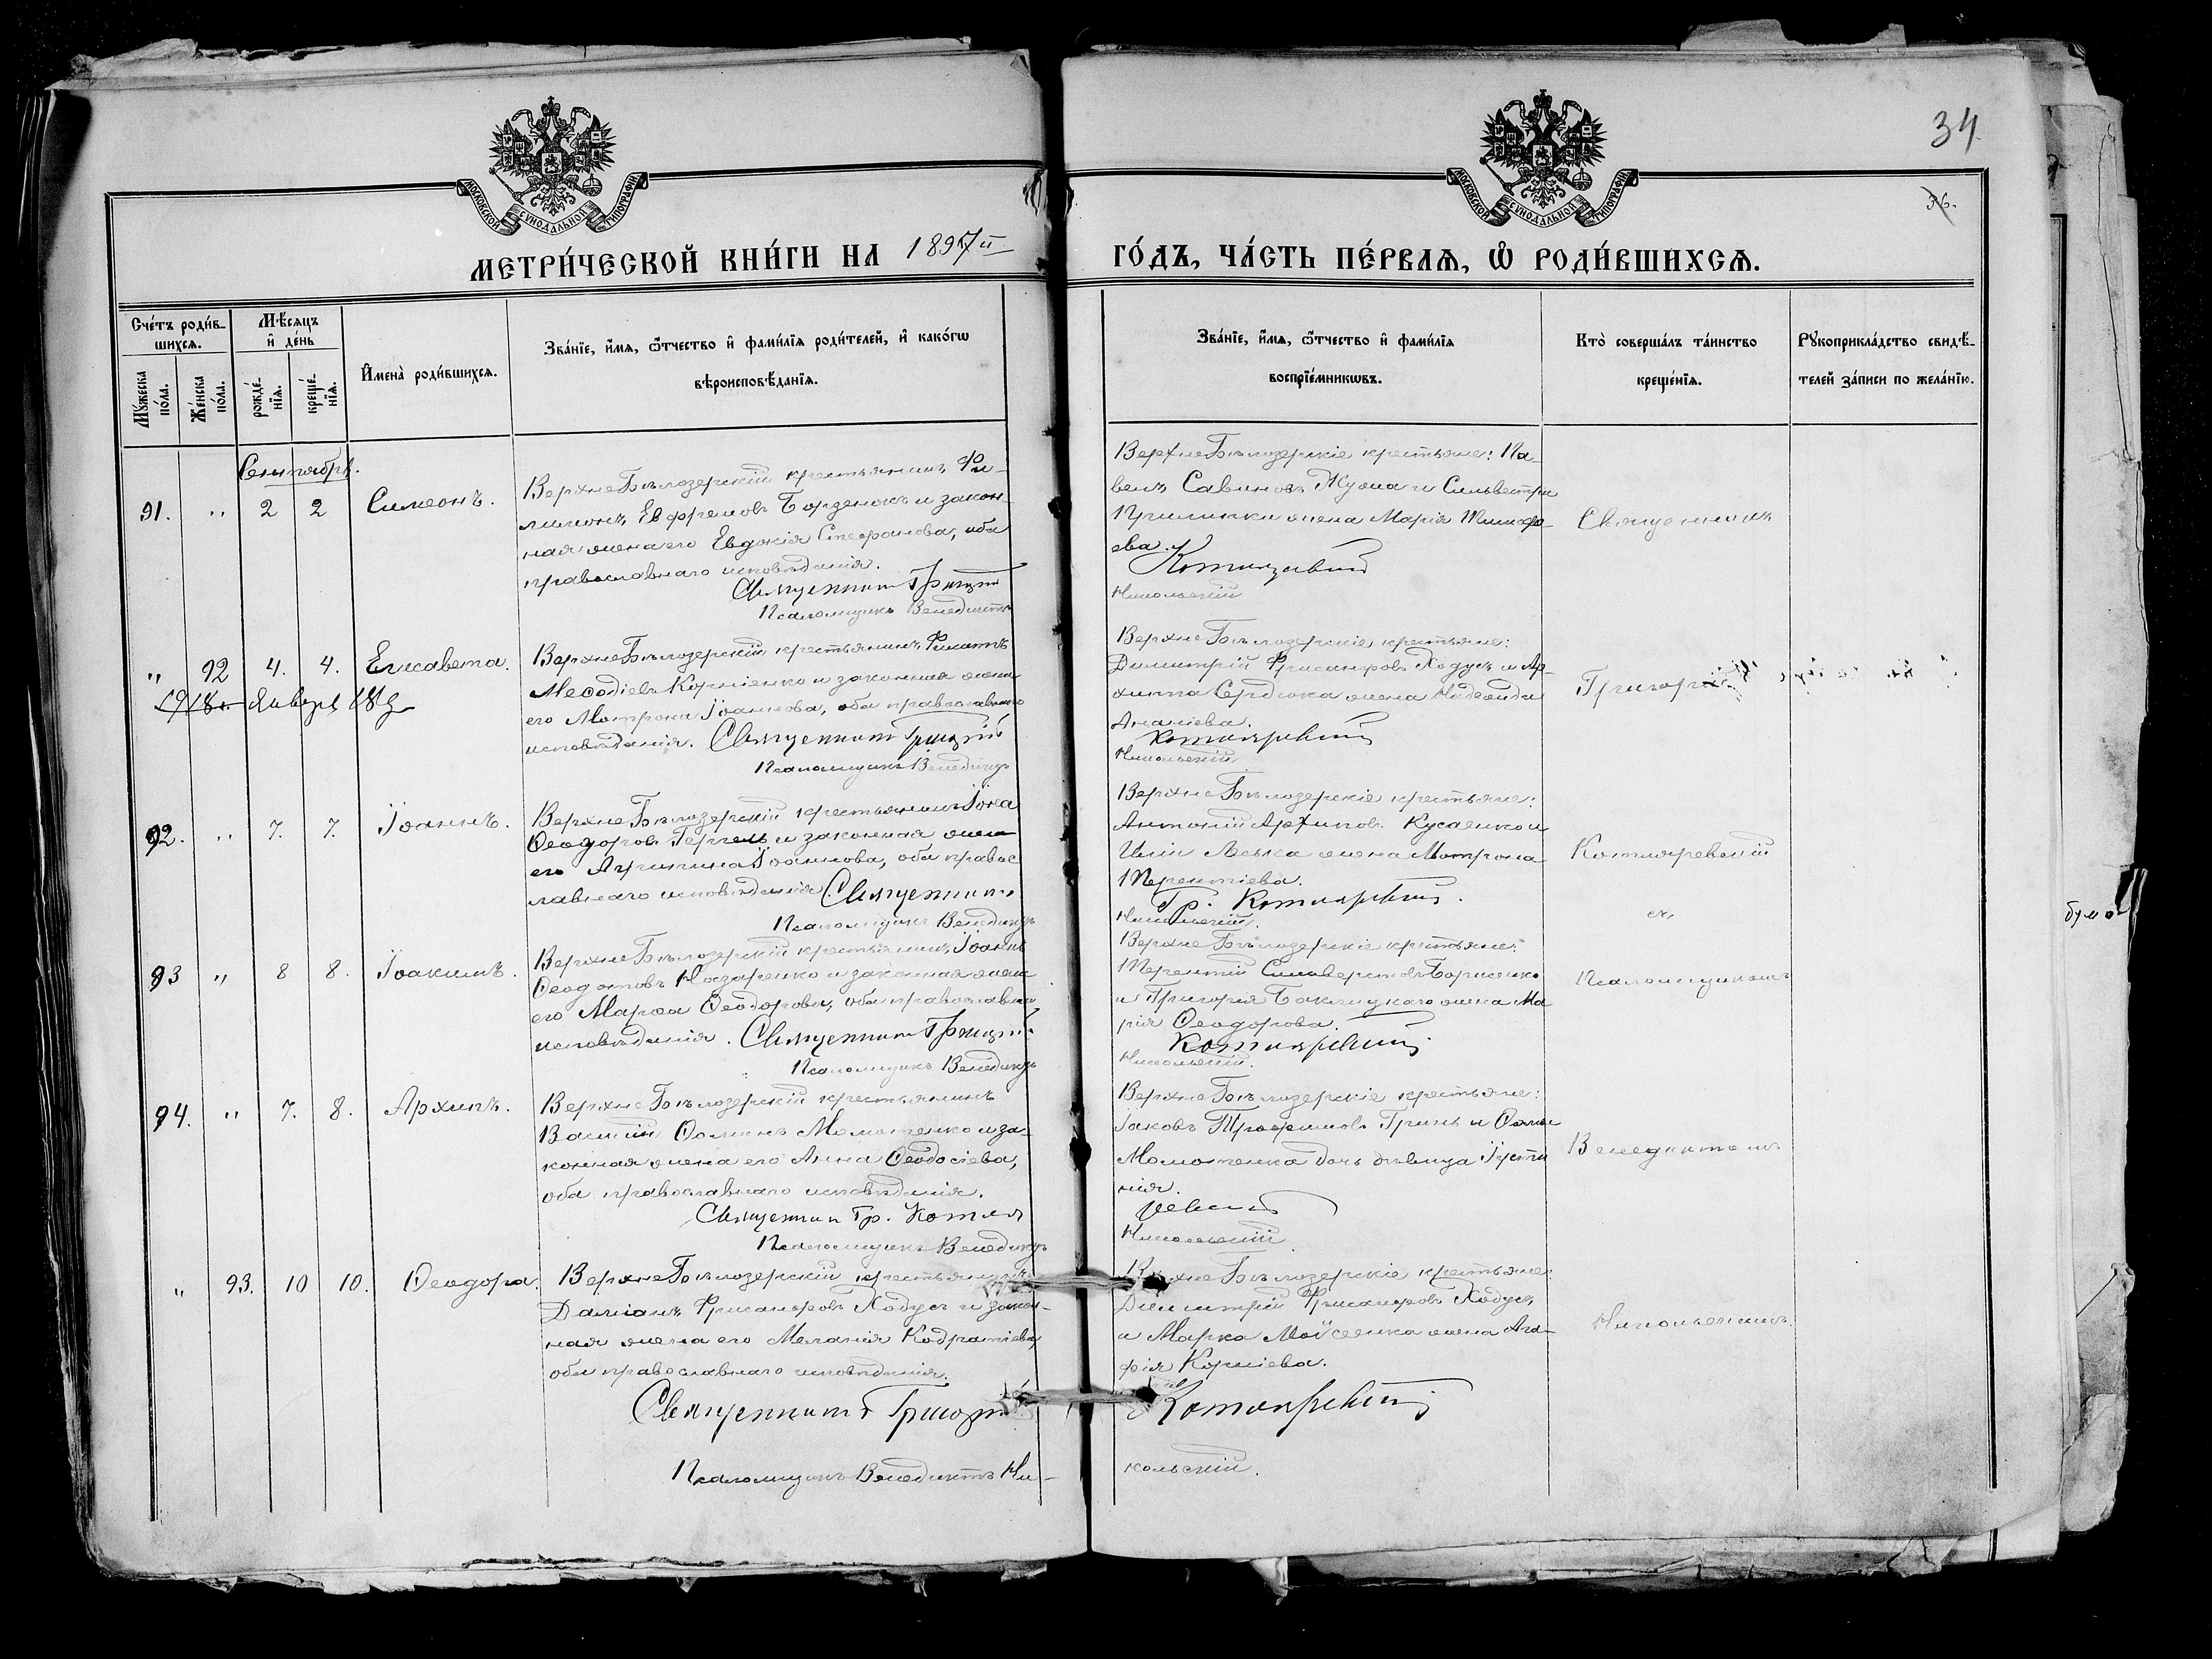 34
36.
МОСКОВСКОЙ СѴНОДАЛЬНОЙ ТИПОГРАФІИ
МОСКОВСКОЙ СѴНОДАЛЬНОЙ ТИПОГРАФІИ
МЕТРИ́ЧЕСКОЙ КНИ́ГИ НА 1897й
ГО́ДЪ, ЧА́СТЬ ПЕ́РВАѦ, Ѡ҆ РОДИ́ВШИХСѦ.
Сче́тъ роди́в-
шихсѧ.
Мѣ́сѧцъ
и҆ де́нь
Мꙋ́жеска
по́ла.
Же́нска
по́ла.
рожде́-
нїѧ.
креще́-
нїѧ.
И҆мена̀ роди́вшихсѧ.
Зва́нїе, и҆́мѧ, ѻ҆́тчество и҆ фами́лїѧ роди́телей, и҆ како́гѡ
вѣроисповѣ́данїѧ.
Зва́нїе, и҆́мѧ, ѻ҆́тчество и҆ фами́лїѧ
воспрїе́мникѡвъ.
Кто̀ соверша́лъ та́инство
креще́нїѧ.
Рꙋкоприкла́дство свидѣ́-
телей за́писи по жела́нїю.
Сентябрь.
91. " 2 2 Симеонъ.
ВерхнеБѣлозерскій крестьянинъ Фи-
лимонъ Евфремовъ Борзенокъ и закон-
ная жена его Евдокія Стефанова, оба
православнаго исповѣданія.
Священникъ Григорій
Псаломщикъ Венедиктъ
ВерхнеБѣлозерскіе крестьяне: Па-
велъ Савиновъ и Сильвестра
жена Марія Тимофе-
ева.
Котляревскій
Никольскій
Священникъ
" 92 4. 4. Елисавета.
Января
ВерхнеБѣлозерскій крестьянинъ
Меѳодіевъ Корніенко и законная жена
его Мотрона Іоаннова, оба православнаго
исповѣданія. Священникъ Григорій
Псаломщикъ Венедиктъ
ВерхнеБѣлозерскіе крестьяне:
Димитрій Ѳрисанфовъ Ходусъ и Ар-
хипа Сердюка жена Надежда
Ананіева.
Котляревскій
Никольскій
Григорій
92. " 7. 7. Іоаннъ.
ВерхнеБѣлозерскій крестьянинъ Іона
Ѳеодоровъ Гергель и законная жена
его Агрипина Іоаннова, оба правос
лавнаго исповѣданія. Священникъ
Псаломщикъ Венедиктъ
ВерхнеБѣлозерскіе крестьяне:
Антоній Архиповъ Кусаенко и
Иліи Лѣська жена Мотрона
Терентіева.
Гр. Котляревскій.
Никольскій.
Котляревскій
съ
93 " 8 8. Іоакимъ.
ВерхнеБѣлозерскій крестьянинъ Іоаннъ
Ѳеодотовъ Назаренко и законная жена
его Марѳа Ѳеодорова, оба православнаго
исповѣданія. Священникъ Григорій
Псаломщикъ Венедиктъ
ВерхнеБѣлозерскіе крестьяне:
Терентій Сильверстовъ Борисенко
и Григорія Баклицкаго жена Ма
рія Ѳеодорова.
Котляревскій
Никольскій.
Псаломщикомъ
94. " 7. 8. Архипъ.
ВерхнеБѣлозерскій крестьянинъ
Васілій Ѳоминъ Момотенко и за-
конная жена его Анна Ѳеодосіева,
оба православнаго исповѣданія.
Священникъ Гр. Котля
Псаломщикъ Венедиктъ
ВерхнеБѣлозерскіе крестьяне:
Іаковъ Трофимовъ Гринь и Ѳомы
Момотенка дочь дѣвица Іусти
нія.
ревскій
Никольскій
Венедиктомъ
" 93. 10 10. Ѳеодора.
ВерхнеБѣлозерскій крестьянинъ
Даміанъ Ѳрисанфовъ Ходусъ и закон-
ная жена его Меланія Кодратіева,
оба православнаго исповѣданія.
Священникъ Григорій
Псаломщикъ Венедиктъ Ни-
ВерхнеБѣлозерскіе крестьяне:
Димитрій Ѳрисанфовъ Ходусъ
и Марка Мойсеенка жена Ага-
фія Корніева.
Котляревскій
кольскій.
Никольскимъ.